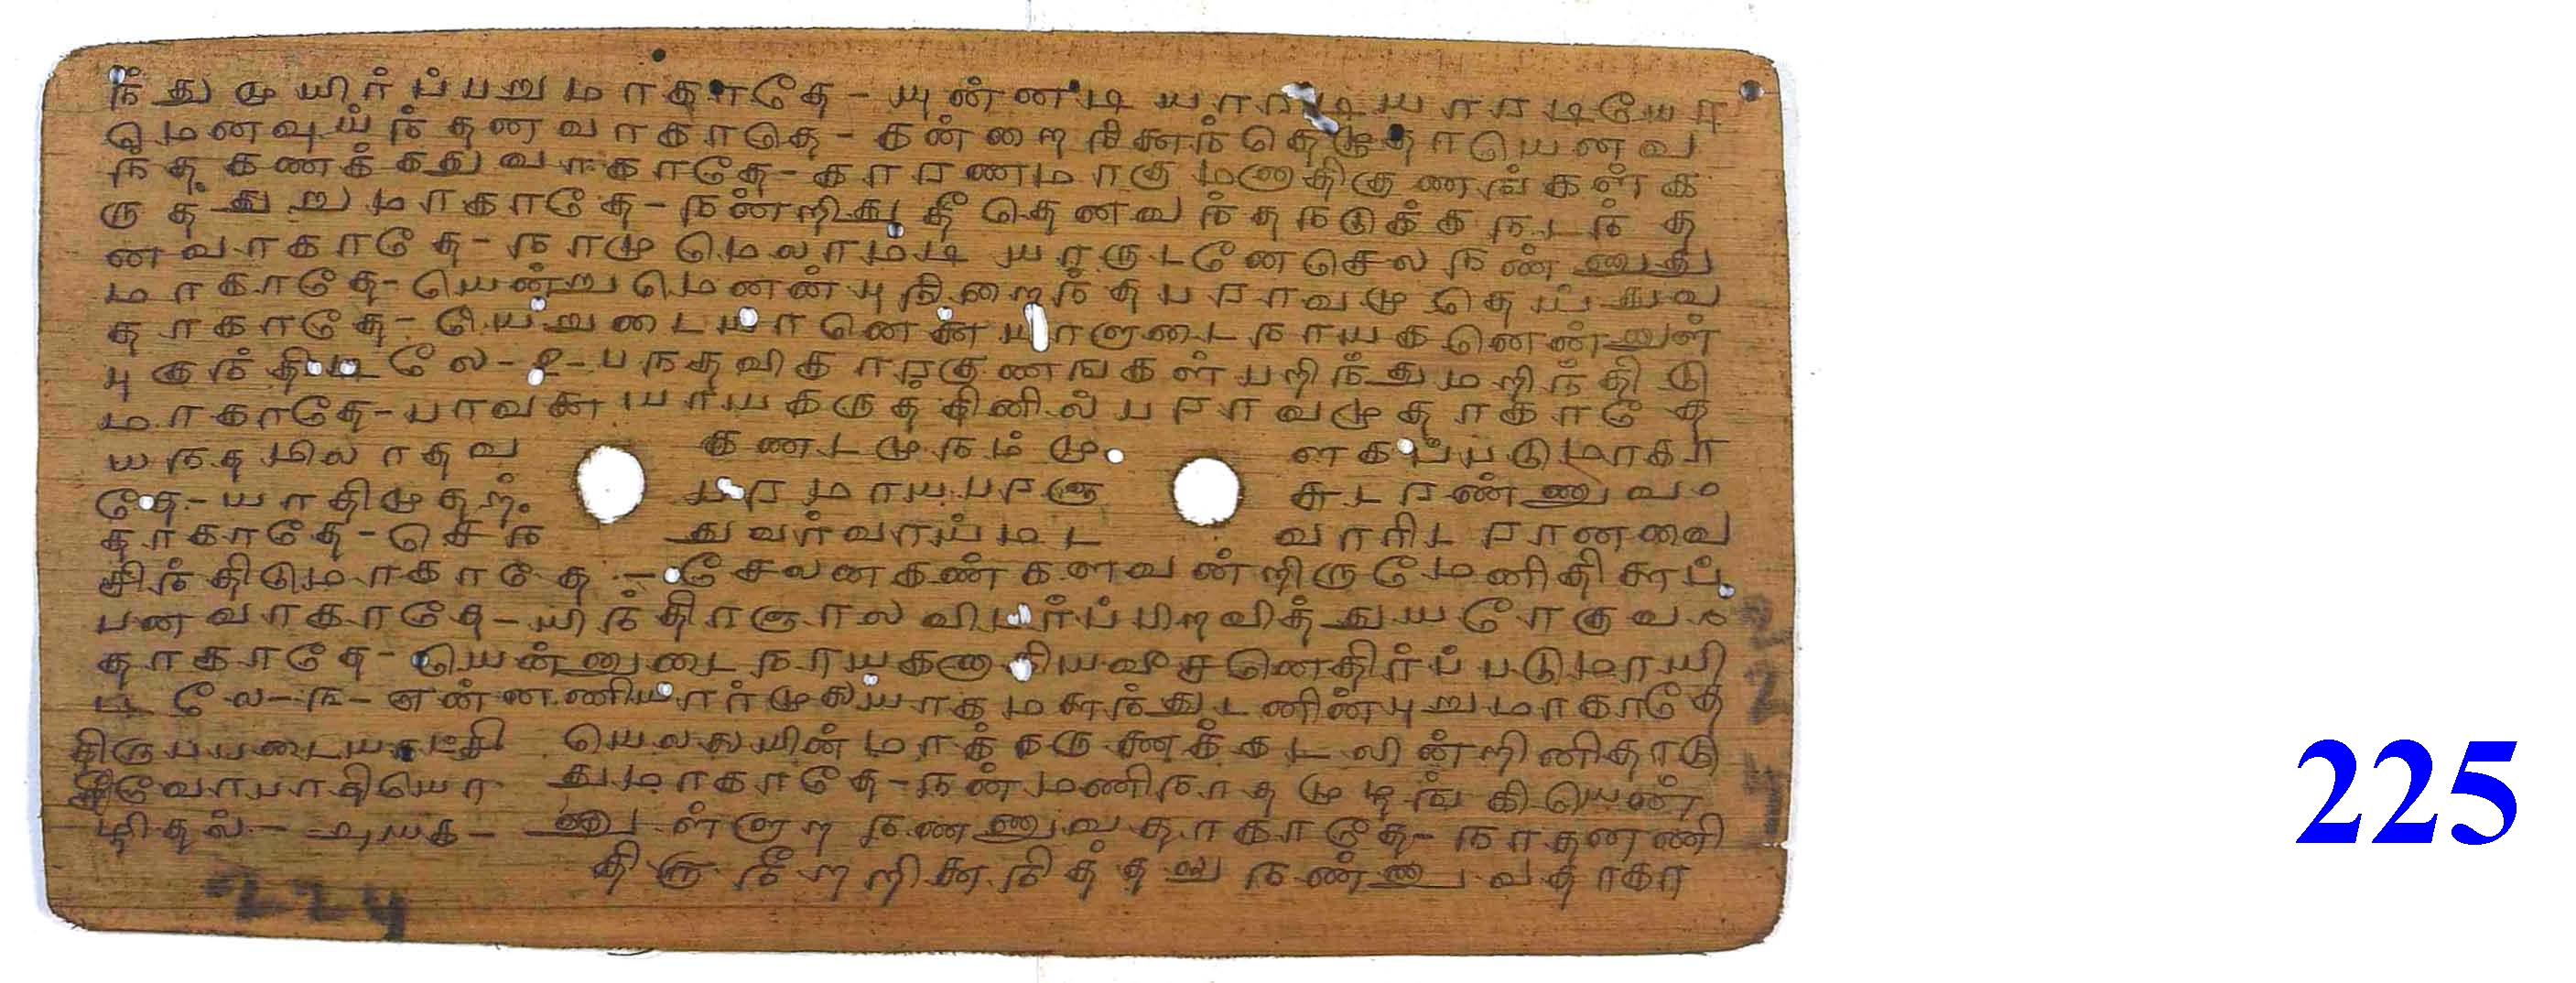 ந்துமுயிர்ப்பறுமாகாதே - யுன்னடியாரடியாரடியோ
மெனவுய்ந்தனவாகாதெ - கன்றை நினைந்தெழுதாயெனவ
ந்த கணக்கதுவாகாதே - காரணமாகுமனாதிகுணங்கள்க
ருத துறுமாகாதே - நன்றிது தீ தெனவந்தநடுக்கநடந்த
னவாகாதே - நாமுமெலாமடியாருடனேசெலநண்ணுது
மாகாதே - யென்றுமெனன்புநிறைந்தபராவமுதெய்துவ
தாகாதே - யெறுடையானெனையாளுடைநாயகனென்னுள்
புகுந்திடிலே - ௨ - பநதவிகாரகுணஙகள்பறிந்துமறிந்திடு
மாகாதே - பாவனையாயகருததினில்பராவமுதாகாதே
யநதமிலாதவ கணடமுநம்மு ளகப்படுமாகா
தே - யாதிமுதற் பரமாயபரஞ சுடரண்ணுவ
தாகாதே - செந துவர்வாய்மட வாரிடரானவை
சிந்திடுமாகாதே - சேலனகண்களவன்றிருமேனிதிளைப்
பனவாகாதே - யிந்திரஞாலவிடர்ப்பிறவித்துயரேகுவ
தாகாதே - யென்னுடைநாயகனாகியவீசனெதிர்ப்படுமாயி
டிலே - ௩ - என்னணியார்முலையாகமளைந்துடனின்புறுமாகாதே
திருபபடையாட்சி யெலலையின்மாக்கருணைக்கடலின்றினிதாடு
சீவோபாதியொ துமாகாதே - நன்மணிநாதமுழங்கியென்
ழிதல் - னுள்ளுற நணணுவதாகாதே - நாதனணி
திருநீற்றினைநித்தலுநண்ணுவதாகா
224
225